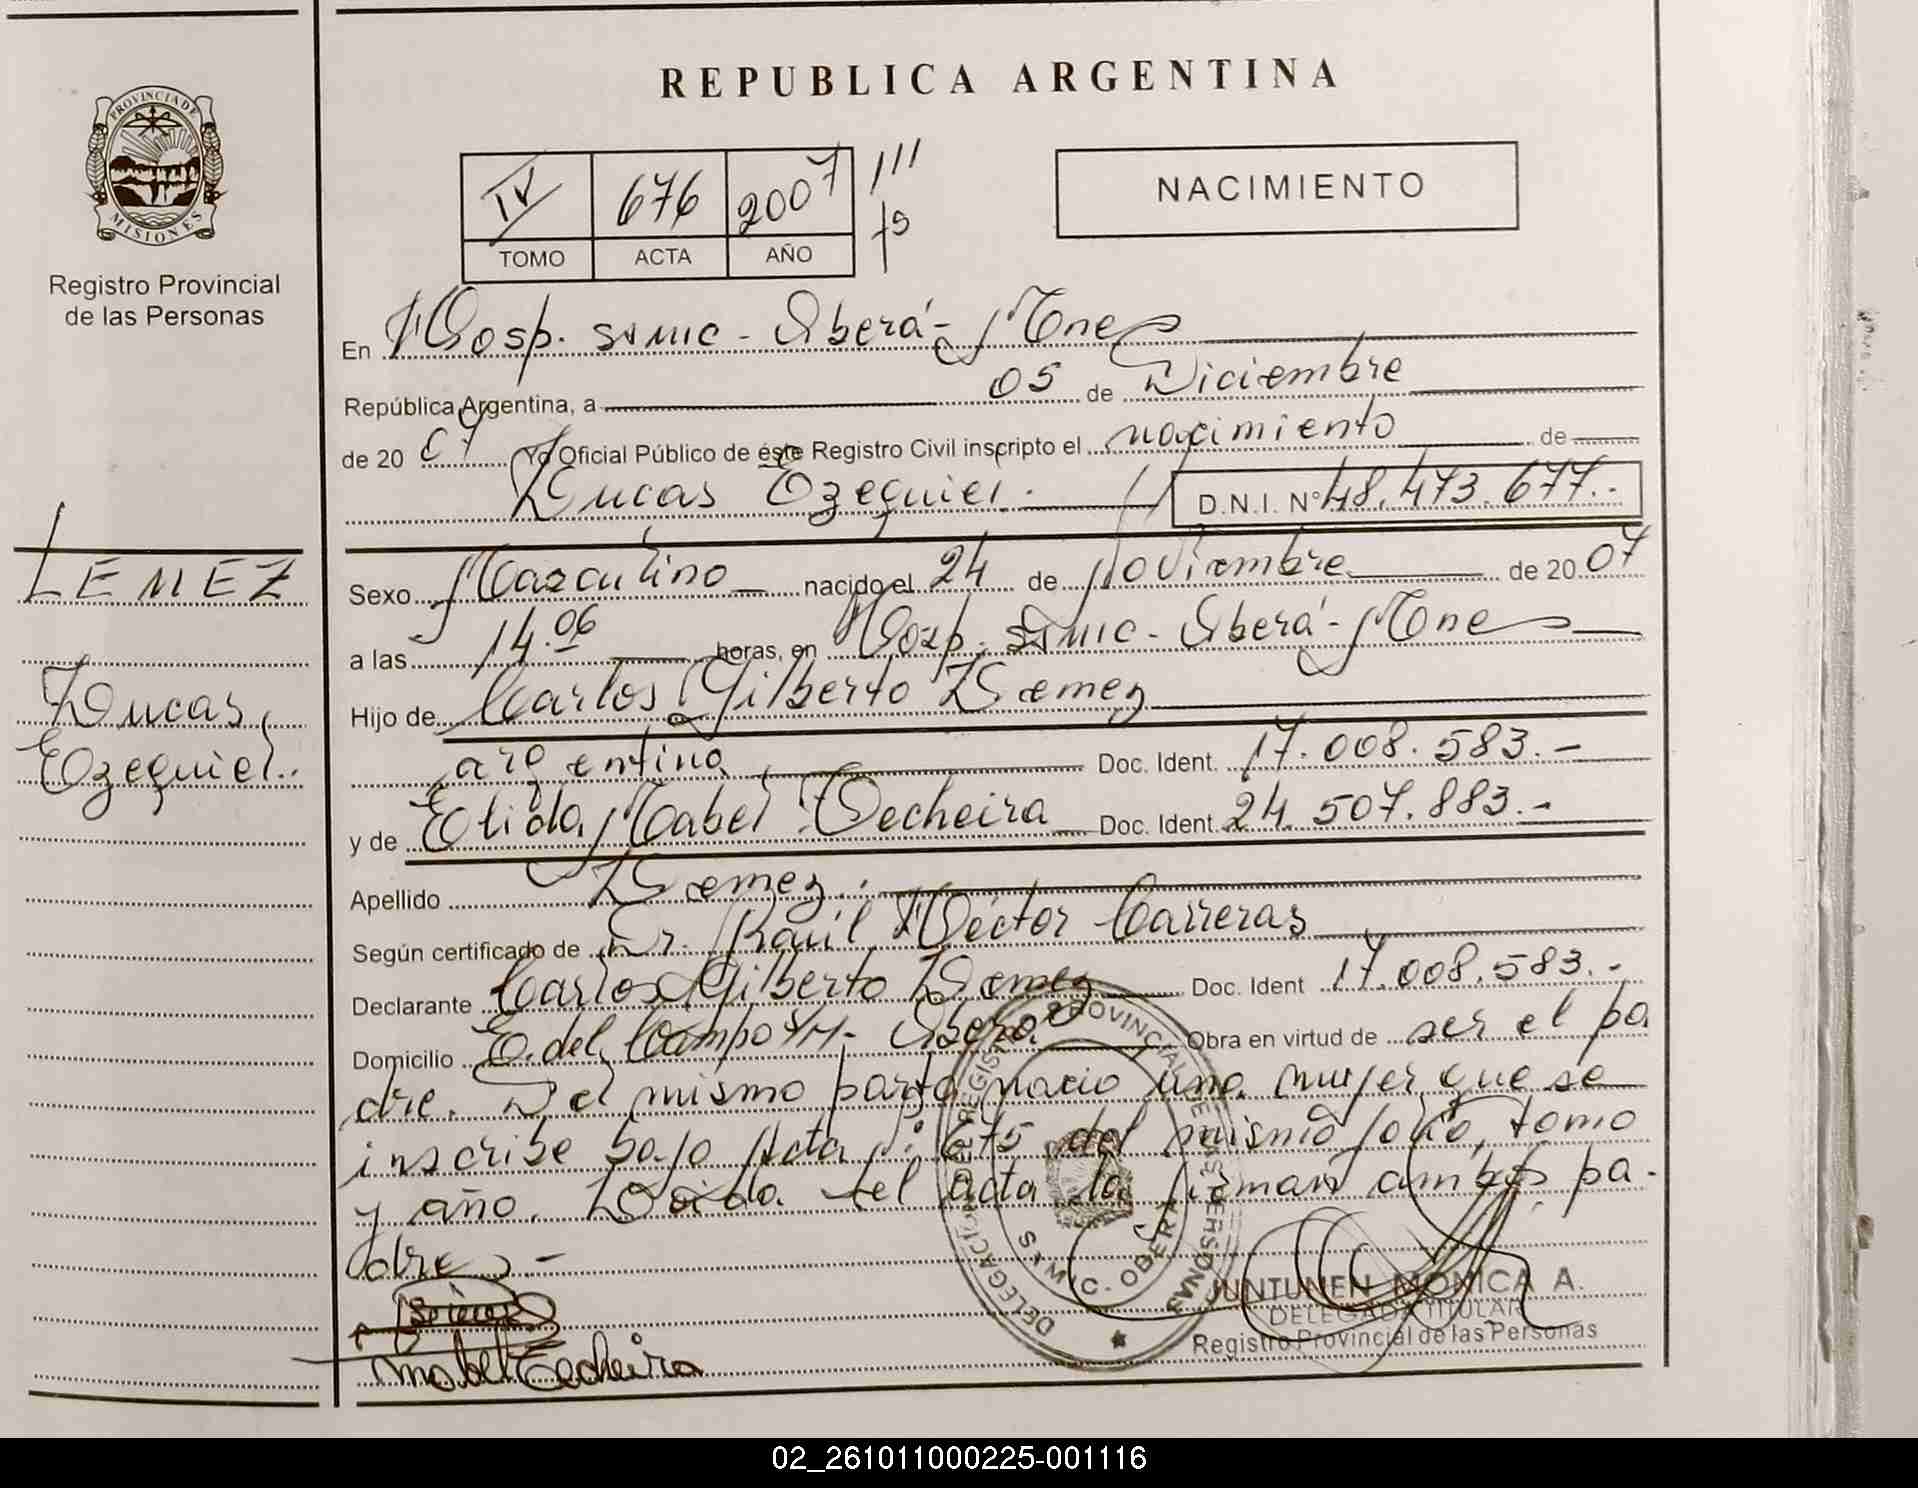 REPUBLICA ARGENTINA
PROVINCIA DE
MISIONES
Registro Provincial
de las Personas
IV 676 2007
TOMO ACTA AÑO
NACIMIENTO
En Hosp. SAMIC - Oberá - Mnes
República Argentina, a 05 de Diciembre
de 2007 Yo Oficial Público de éste Registro Civil inscripto el nacimiento de
Lucas Ezequiel. D.N.I. Nº 48.473.677.-
LEMEZ
Lucas
Ezequiel.
Sexo Masculino nacido el 24 de Noviembre de 2007
a las 14.06 horas, en Hosp. SAMIC - Oberá - Mnes
Hijo de Carlos Gilberto Lemez
argentino Doc. Ident. 17.008.583.-
y de Elida Mabel Techeira Doc. Ident. 24.507.883.-
Apellido Lemez.
Según certificado de Dr. Raúl Héctor Carreras
Declarante Carlos Gilberto Lemez Doc. Ident 17.008.583.-
Domicilio E. del Campo Oberá Obra en virtud de ser el pa
dre. Del mismo parto nacio una mujer que se
inscribe bajo Acta 675 del mismo folio, tomo
y año. Leida el acta la firman ambos pa-
dres -
Mabel Techeira
DELEGACION REGISTRO PROVINCIAL DE LAS PERSONAS
SAMIC. OBERA
JUNTUNEN MONICA A.
DELEGADA TITULAR
Registro Provincial de las Personas
02_261011000225-001116